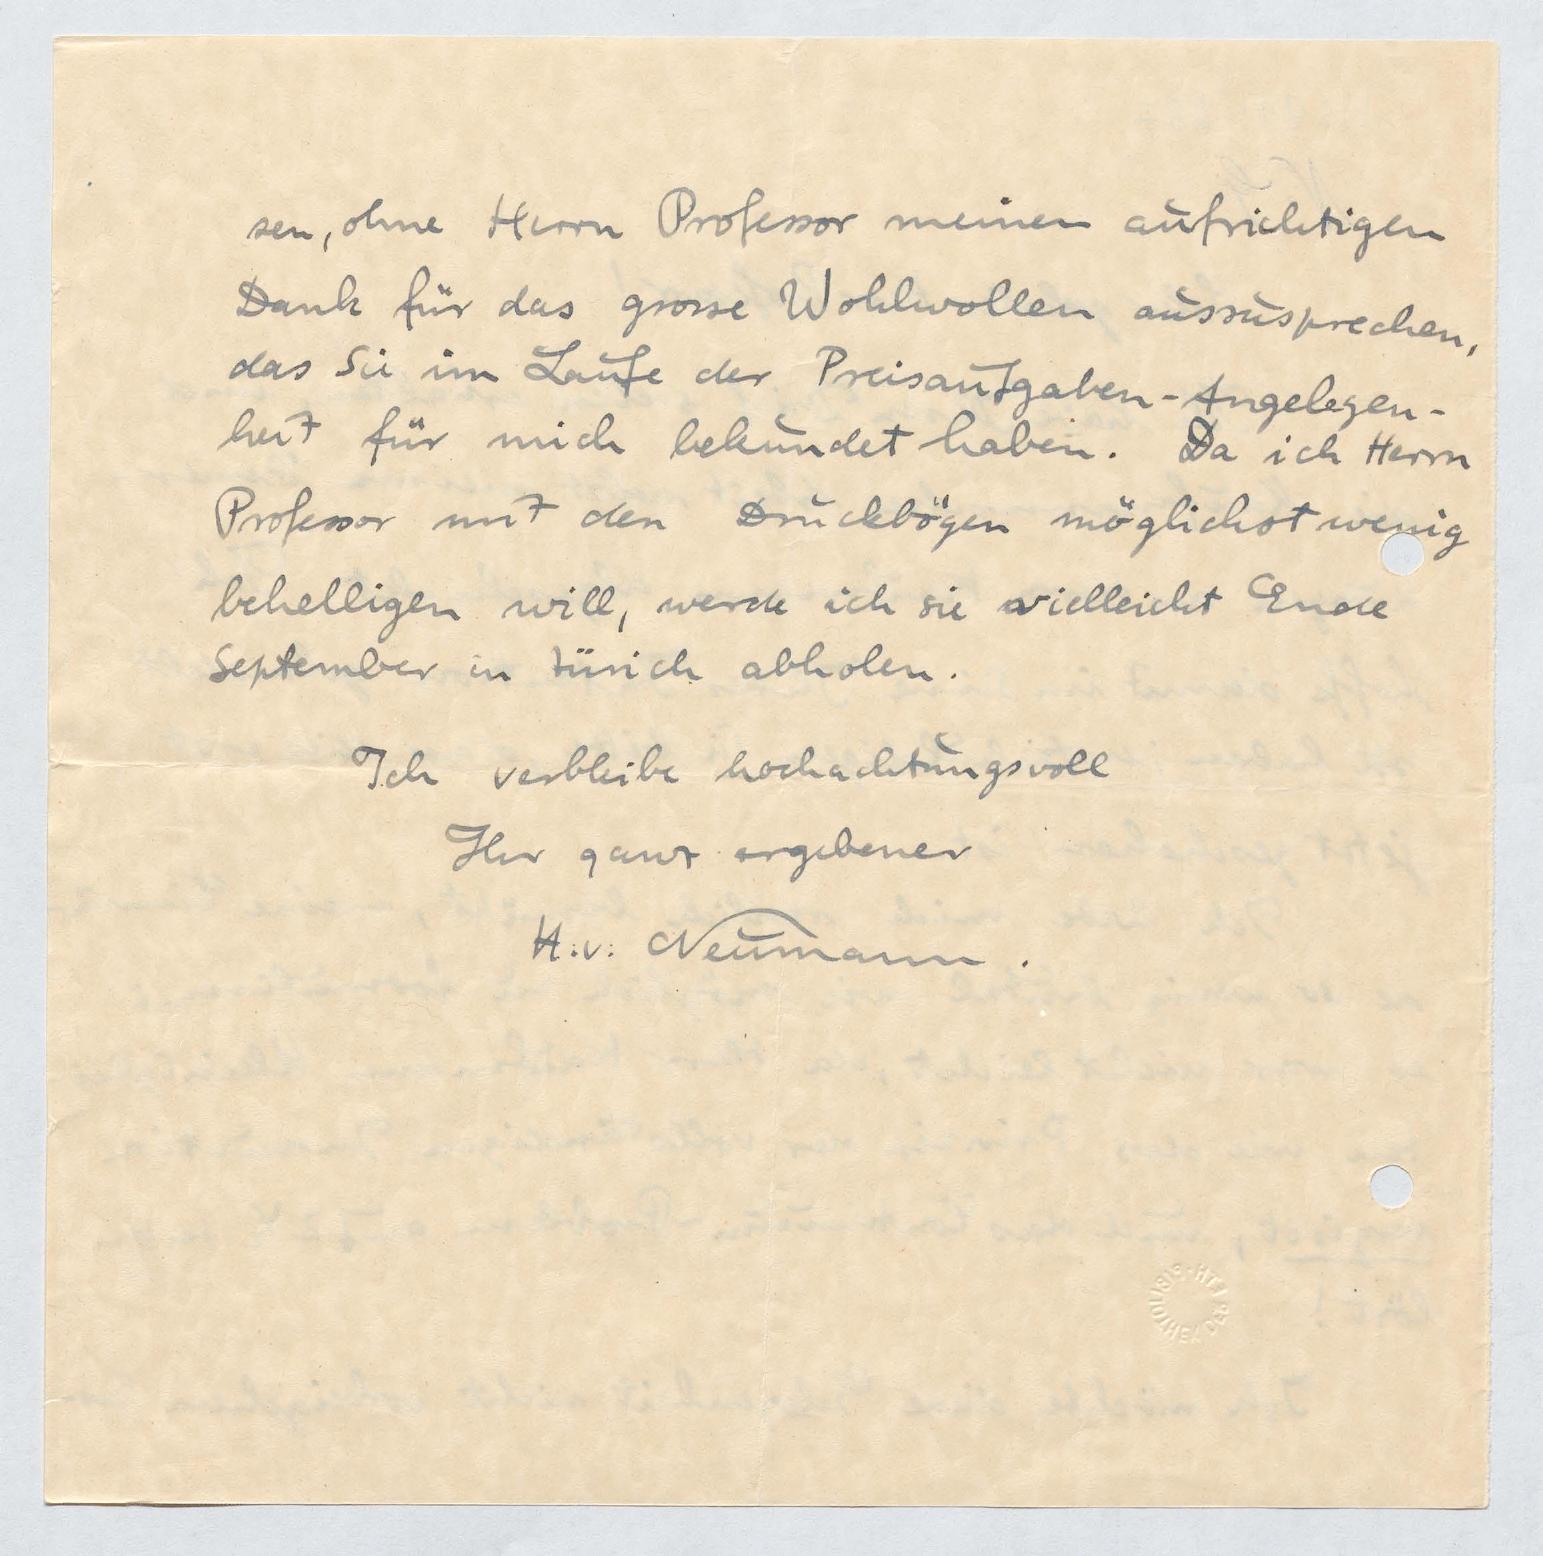 sen, ohne Herrn Professor meinen aufrichtigen
Dank für das grosse Wohlwollen auszusprechen,
das Sie im Laufe der Preisaufgaben-Angelegen-
heit für mich bekundet haben. Da ich Herrn
Professor mit den Druckbögen möglichst wenig
behelligen will, werde ich sie vielleicht Ende
September in Zürich abholen.
Ich verbleibe hochachtungsvoll
Ihr ganz ergebener
H. v. Neumann.